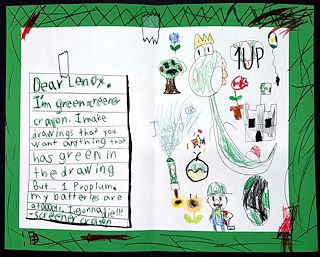 Dear Lenox,
I'm greenscreener
crayon. I make
drawings that you
want anything that
has green in
the drawing
but... 1 Proplum.
my batteries are
I gonna die!!!
-screener crayon
1UP